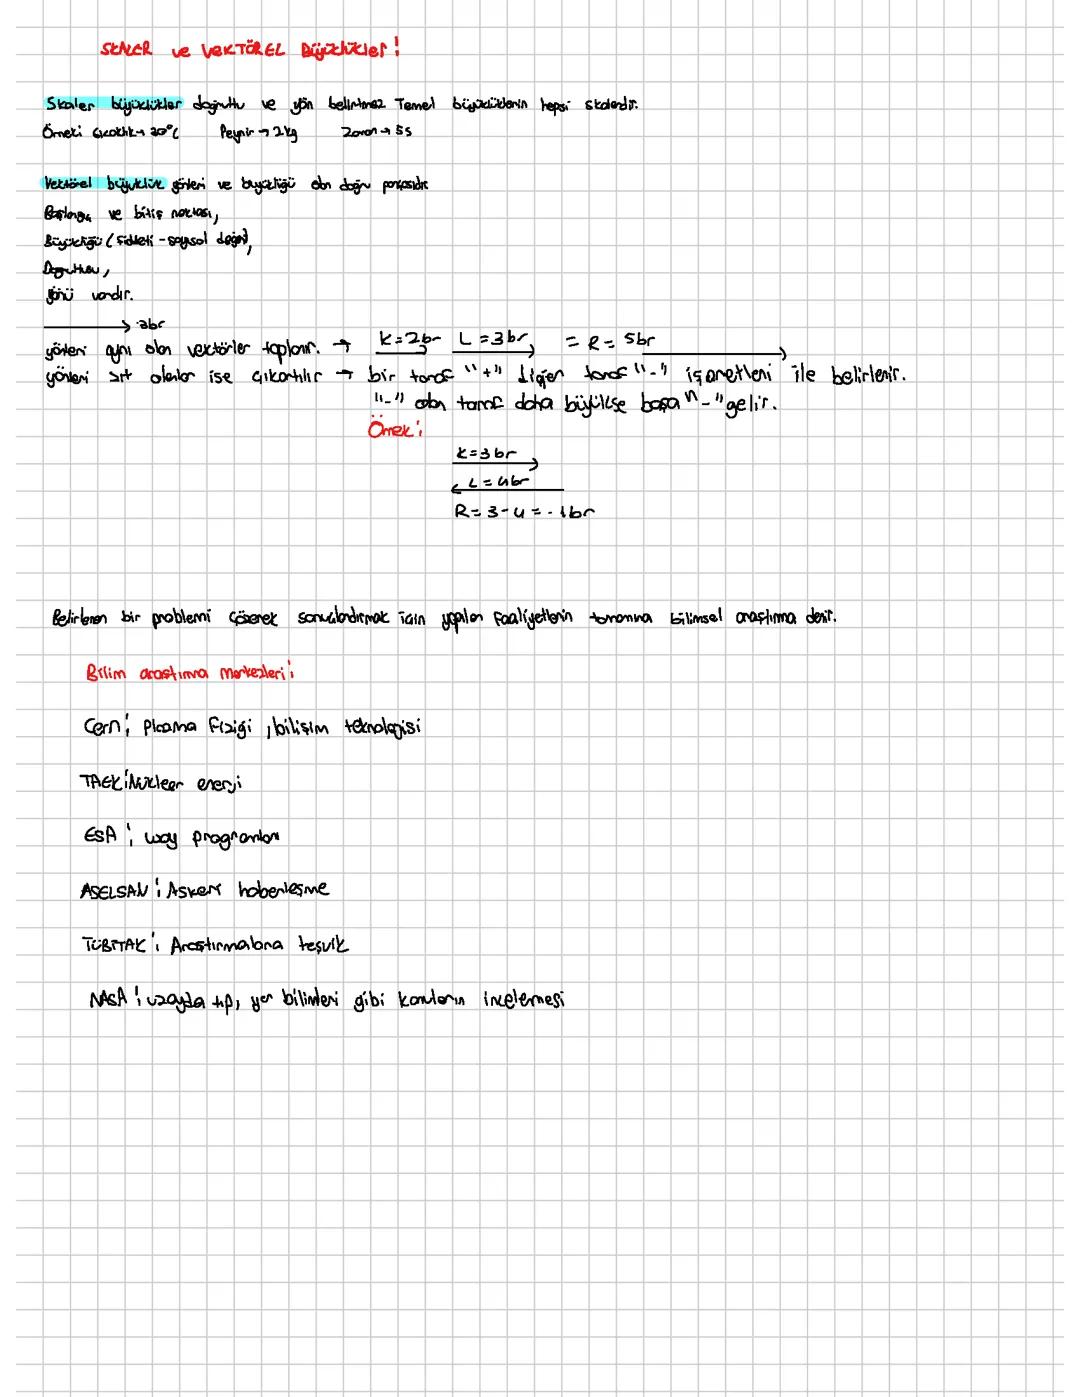 SKALER ve VEKTÖREL Büyüklükler!
Skaler büyüklükler doğrultu ve yön belirtmez Temel büyüklüklerin hepsi skalerdir.
Örnek: Sıcaklık→ 20°C Peynir→2kg Zaman→5s
Vektörel büyüklük yönleri ve büyüklüğü olan doğru parçasıdır
Başlangıç ve bitiş noktası,
Büyüklüğü (şiddeti-sayısal değeri),
Doğrultusu,
yönü vardır.
3br
yönleri aynı olan vektörler toplanır. → K=2br L=3br = R=5br
yönleri zıt olanlar ise çıkartılır → bir taraf "+" diğer taraf "-" işaretleri ile belirlenir.
"-" olan taraf daha büyükse başa "-" gelir.
Örnek:
K=3br
L=4br
R=3-4=-1br
Belirlenen bir problemi çözerek sonuçlandırmak için yapılan faaliyetlerin tamamına bilimsel araştırma denir.
Bilim araştırma merkezleri:
Cern: Plazma fiziği, bilişim teknolojisi
TAEK: Nükleer enerji
ESA: uzay programları
ASELSAN: Askeri haberleşme
TÜBİTAK: Araştırmalara teşvik
NASA: uzayda tıp, yer bilimleri gibi konuların incelemesi